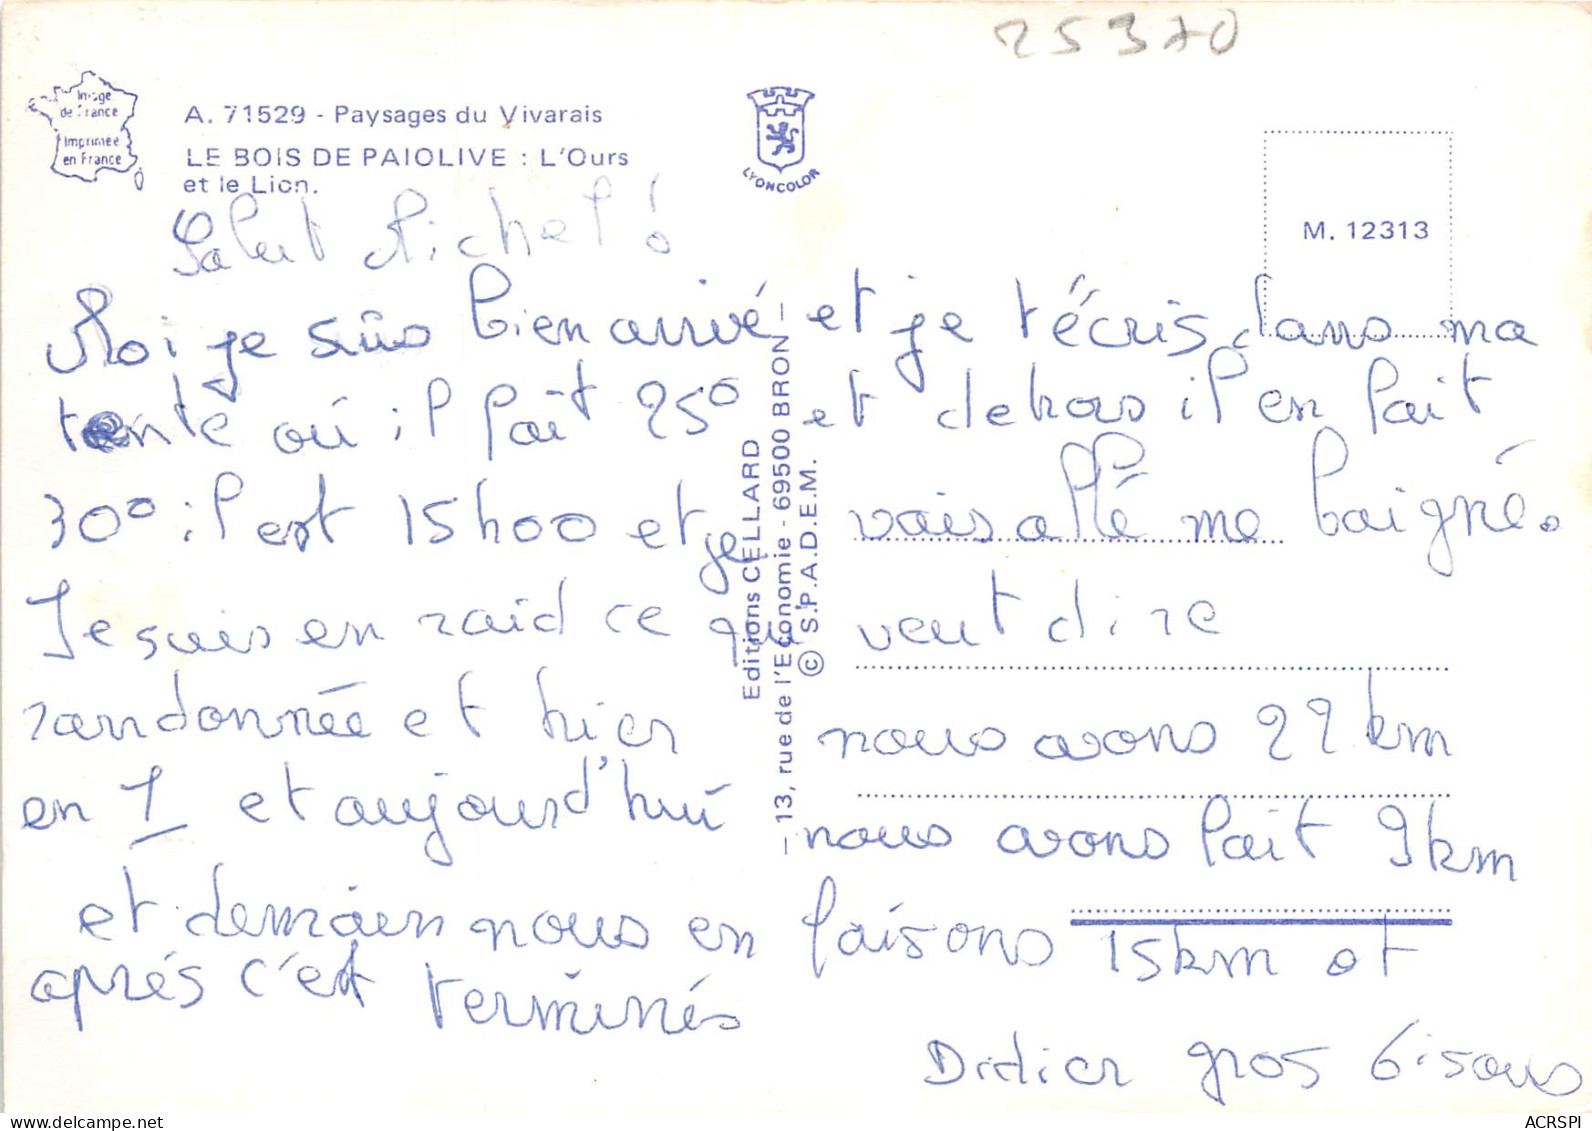 25370
Image
de France
Imprimée
en France
A. 71529 - Paysages du Vivarais
LE BOIS DE PAIOLIVE : L'Ours
et le Lion.
LYONCOLOR
M. 12313
Salut Michel !
Moi je sûis bien arrivé et je t'écris dans ma
tente où il fait 25° et dehors il en fait
30° il est 15h00 et je vais allé me baigné.
Je suis en raid ce qui veut dire
randonnée et hier nous avons 22 km
en 1 et aujourd'hui nous avons fait 9km
et demain nous en faisons 15km et
après c'est terminés
Didier gros bisous
Editions CELLARD
13, rue de l'Economie - 69500 BRON
© S.P.A.D.E.M.
ACRSPI